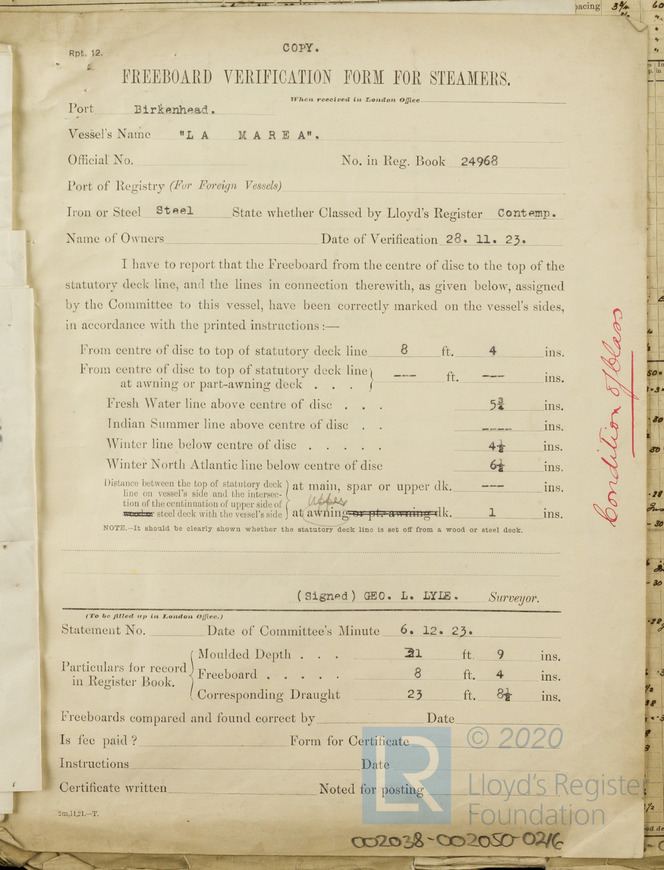 COPY.
Rpt. 12.
FREEBOARD VERIFICATION FORM FOR STEAMERS.
When received in London Office
Port Birkenhead.
Vessel's Name "LA MAREA".
Official No. No. in Reg. Book 24968
Port of Registry (For Foreign Vessels)
Iron or Steel Steel State whether Classed by Lloyd's Register Contemp.
Name of Owners Date of Verification 28. 11. 23.
I have to report that the Freeboard from the centre of disc to the top of the
statutory deck line, and the lines in connection therewith, as given below, assigned
by the Committee to this vessel, have been correctly marked on the vessel's sides,
in accordance with the printed instructions :—
From centre of disc to top of statutory deck line 8 ft. 4 ins.
From centre of disc to top of statutory deck line
at awning or part-awning deck . . . --- ft. --- ins.
Fresh Water line above centre of disc . . . 5¾ ins.
Indian Summer line above centre of disc . . ---- ins.
Winter line below centre of disc . . . . . 4½ ins.
Winter North Atlantic line below centre of disc 6½ ins.
Distance between the top of statutory deck
line on vessel's side and the intersec-
tion of the continuation of upper side of
wood or steel deck with the vessel's side
at main, spar or upper dk. --- ins.
upper
at awning or pt. awning dk. 1 ins.
NOTE.—It should be clearly shown whether the statutory deck line is set off from a wood or steel deck.
(Signed) GEO. L. LYLE. Surveyor.
(To be filled up in London Office.)
Statement No. Date of Committee's Minute 6. 12. 23.
Particulars for record
in Register Book.
Moulded Depth . . . 21 ft. 9 ins.
Freeboard . . . . . 8 ft. 4 ins.
Corresponding Draught 23 ft. 8½ ins.
Freeboards compared and found correct by Date
Is fee paid ? Form for Certificate
Instructions Date
Certificate written Noted for posting
2m,11,21.—T.
Condition of Class
© 2020
LR
Lloyd's Register
Foundation
002038-002050-0216
pacing 3¾